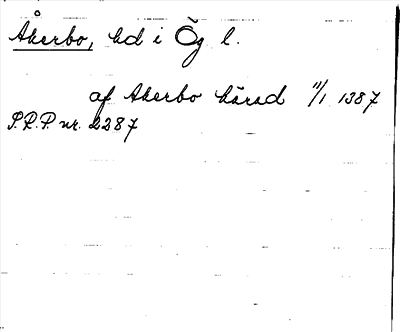 Åkerbo, hd i Ög l.
af Akerbo härad 11/1 1387
S.R.P. nr. 2287